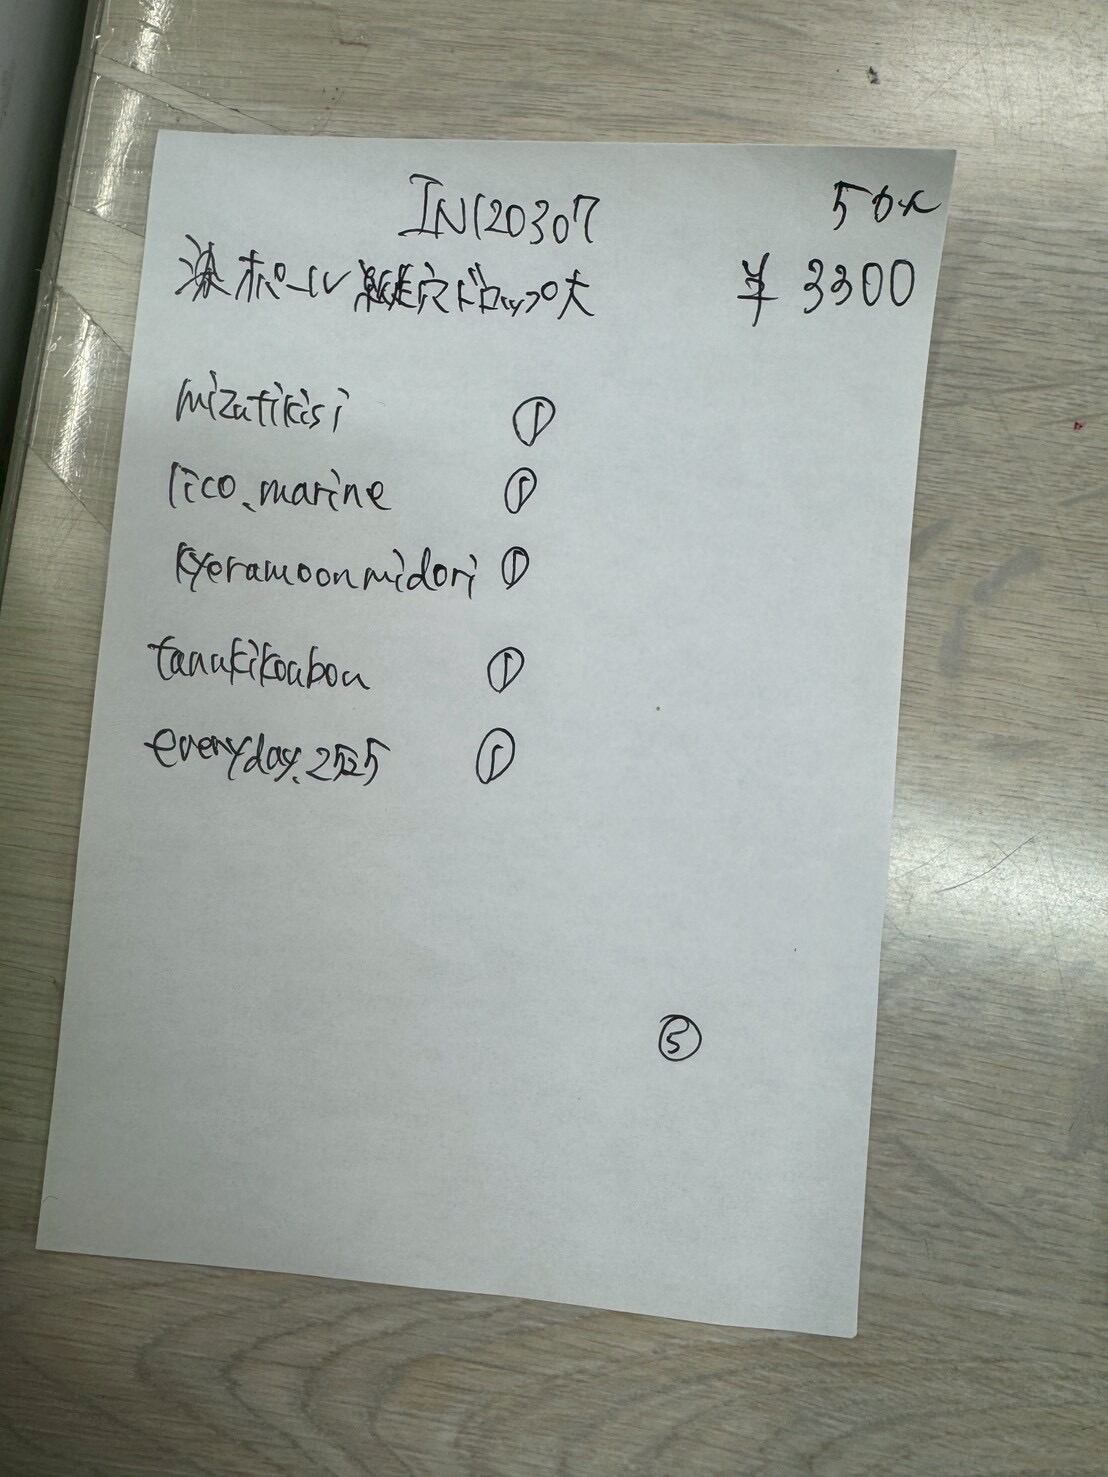 IN120307 50%
淡水パール縦穴ドロップ大 ¥3300
mizatikisi ①
lico.marine ①
kyeramoonmidori ①
tanukikoubou ①
everyday.2525 ①
⑤